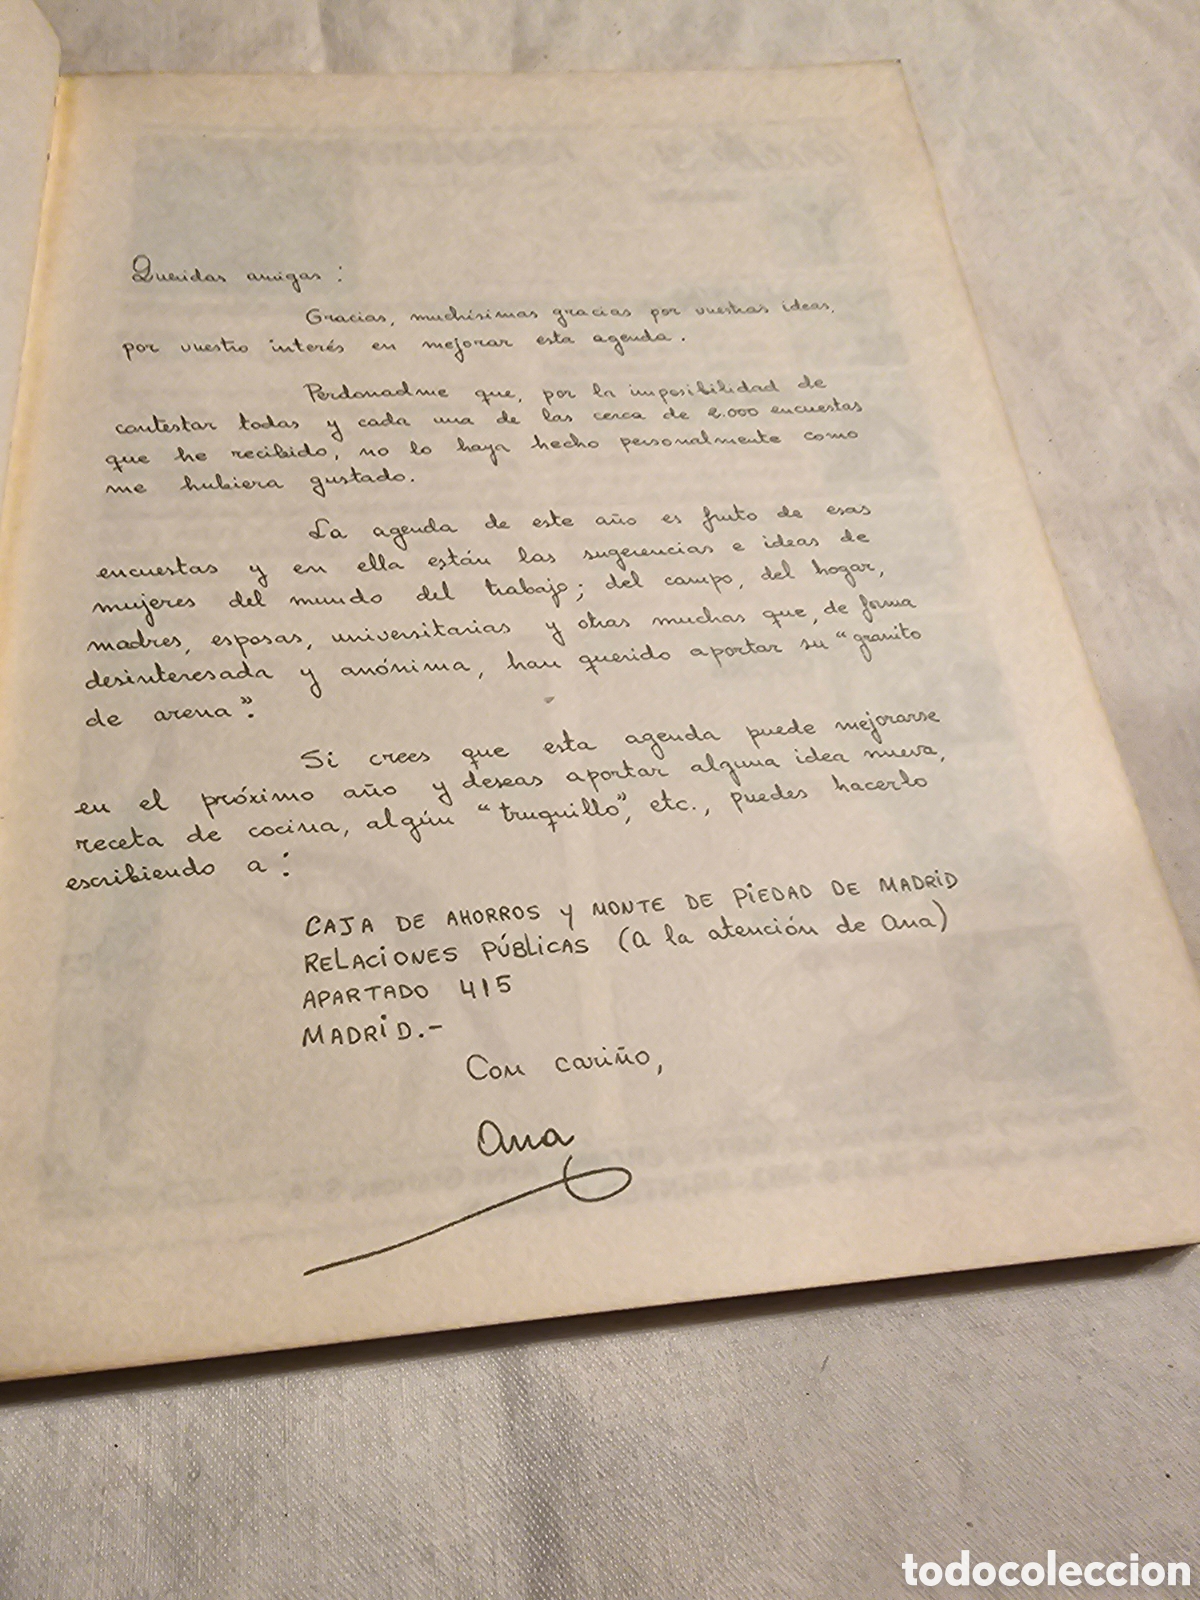 Queridas amigas:
Gracias, muchísimas gracias por vuestras ideas,
por vuestro interés en mejorar esta agenda.
Perdonadme que, por la imposibilidad de
contestar todas y cada una de las cerca de 2.000 encuestas
que he recibido, no lo haya hecho personalmente como
me hubiera gustado.
La agenda de este año es fruto de esas
encuestas y en ella están las sugerencias e ideas de
mujeres del mundo del trabajo; del campo, del hogar,
madres, esposas, universitarias y otras muchas que, de forma
desinteresada y anónima, han querido aportar su "granito
de arena".
Si crees que esta agenda puede mejorarse
en el próximo año y deseas aportar alguna idea nueva,
receta de cocina, algún "truquillo", etc., puedes hacerlo
escribiendo a:
CAJA DE AHORROS y MONTE DE PiEDAD DE MADRiD
RELACIONES PÚBLICAS (a la atención de Ana)
APARTADO 415
MADRiD.-
Con cariño,
Ana
todocoleccion